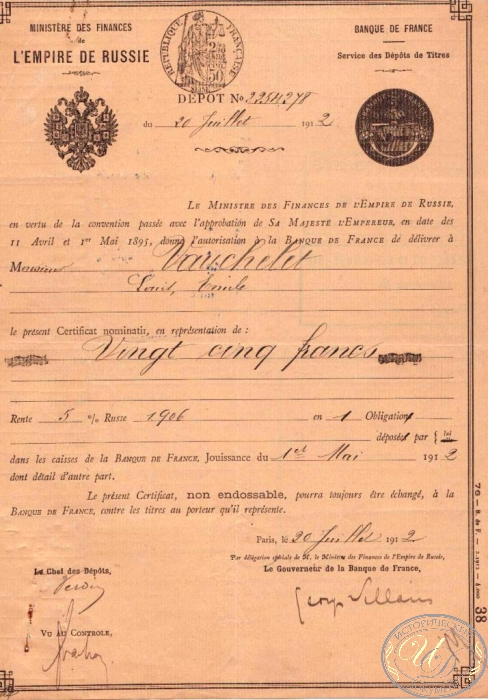 MINISTÈRE DES FINANCES
de
L'EMPIRE DE RUSSIE
RÉPUBLIQUE FRANÇAISE
2
50
BANQUE DE FRANCE
Service des Dépôts de Titres
DÉPÔT No 2254278
du 20 Juillet 1912
BANQUE DE FRANCE
LE MINISTRE DES FINANCES DE L'EMPIRE DE RUSSIE,
en vertu de la convention passée avec l'approbation de SA MAJESTÉ L'EMPEREUR, en date des
11 Avril et 1er Mai 1895, donne l'autorisation à la BANQUE DE FRANCE de délivrer à
Monsieur Varichelet
Louis, Emile
le présent Certificat nominatif, en représentation de :
Vingt cinq francs
Rente 5 % Russe 1906 en 1 Obligation
déposée par { lui
dans les caisses de la BANQUE DE FRANCE, Jouissance du 1er Mai 1912
dont détail d'autre part.
Le présent Certificat, non endossable, pourra toujours être échangé, à
la BANQUE DE FRANCE, contre les titres au porteur qu'il représente.
Paris, le 20 Juillet 1912
Par délégation spéciale de M. le Ministre des Finances de l'Empire de Russie,
Le Gouverneur de la Banque de France,
Le Chef des Dépôts,
VU AU CONTRÔLE,
76 - B. de F. - 2.1912 - 4.000 38
ИСТОРИЧЕСКИЙ